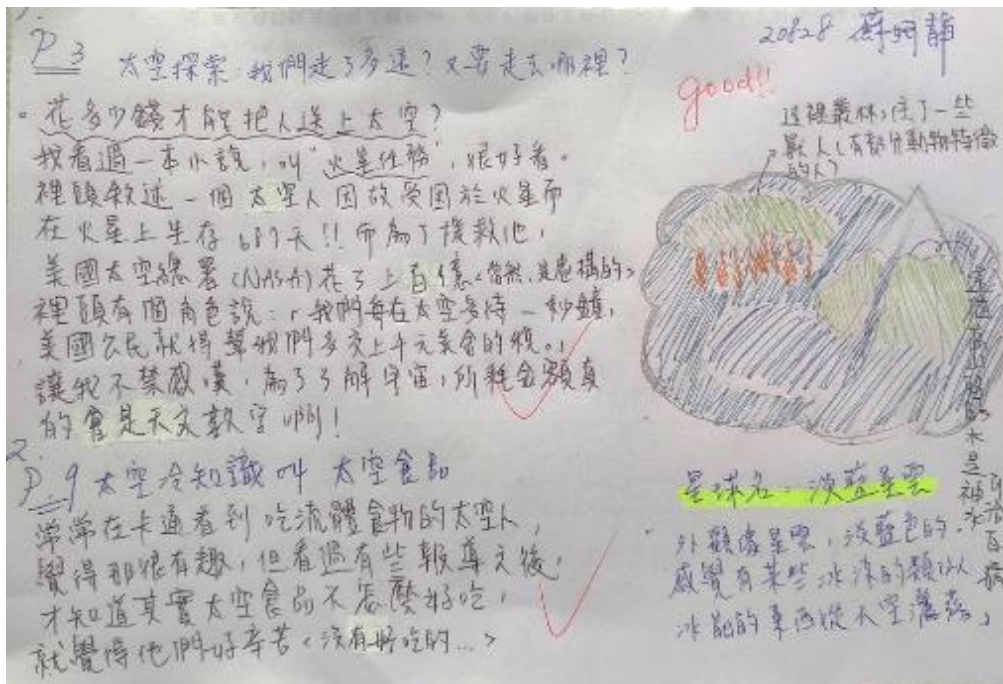 P.3 太空探索:我們走了多遠?又要走去哪裡?
20828
good!!
花多少錢才能把人送上太空?
我看過一本小說,叫"火星任務",很好看。
裡頭敘述一個太空人因故受困於火星而
在火星上生存687天!!而為了援救他,
美國太空總署(NASA)花了上百億(當然,是虛構的)
裡頭有個角色說:「我們每在太空多待一秒鐘,
美國公民就得幫我們多交上千元美金的稅。」
讓我不禁感嘆,為了了解宇宙,所耗金額真
的會是天文數字啊!
2.
P.9 太空冷知識 太空食品
常常在卡通看到吃流體食物的太空人,
覺得那很有趣,但看過有些報導文後,
才知道其實太空食品不怎麼好吃,
就覺得他們好辛苦(沒有好吃的...)
這裡叢林,住了一些
獸人(有部分動物特徵
的人)
這座高山 的水是神水
可治百病
星球名:淡藍星雲
外觀像星雲,淡藍色的。
感覺有某些冰涼的類似
冰晶的東西從天空灑落。